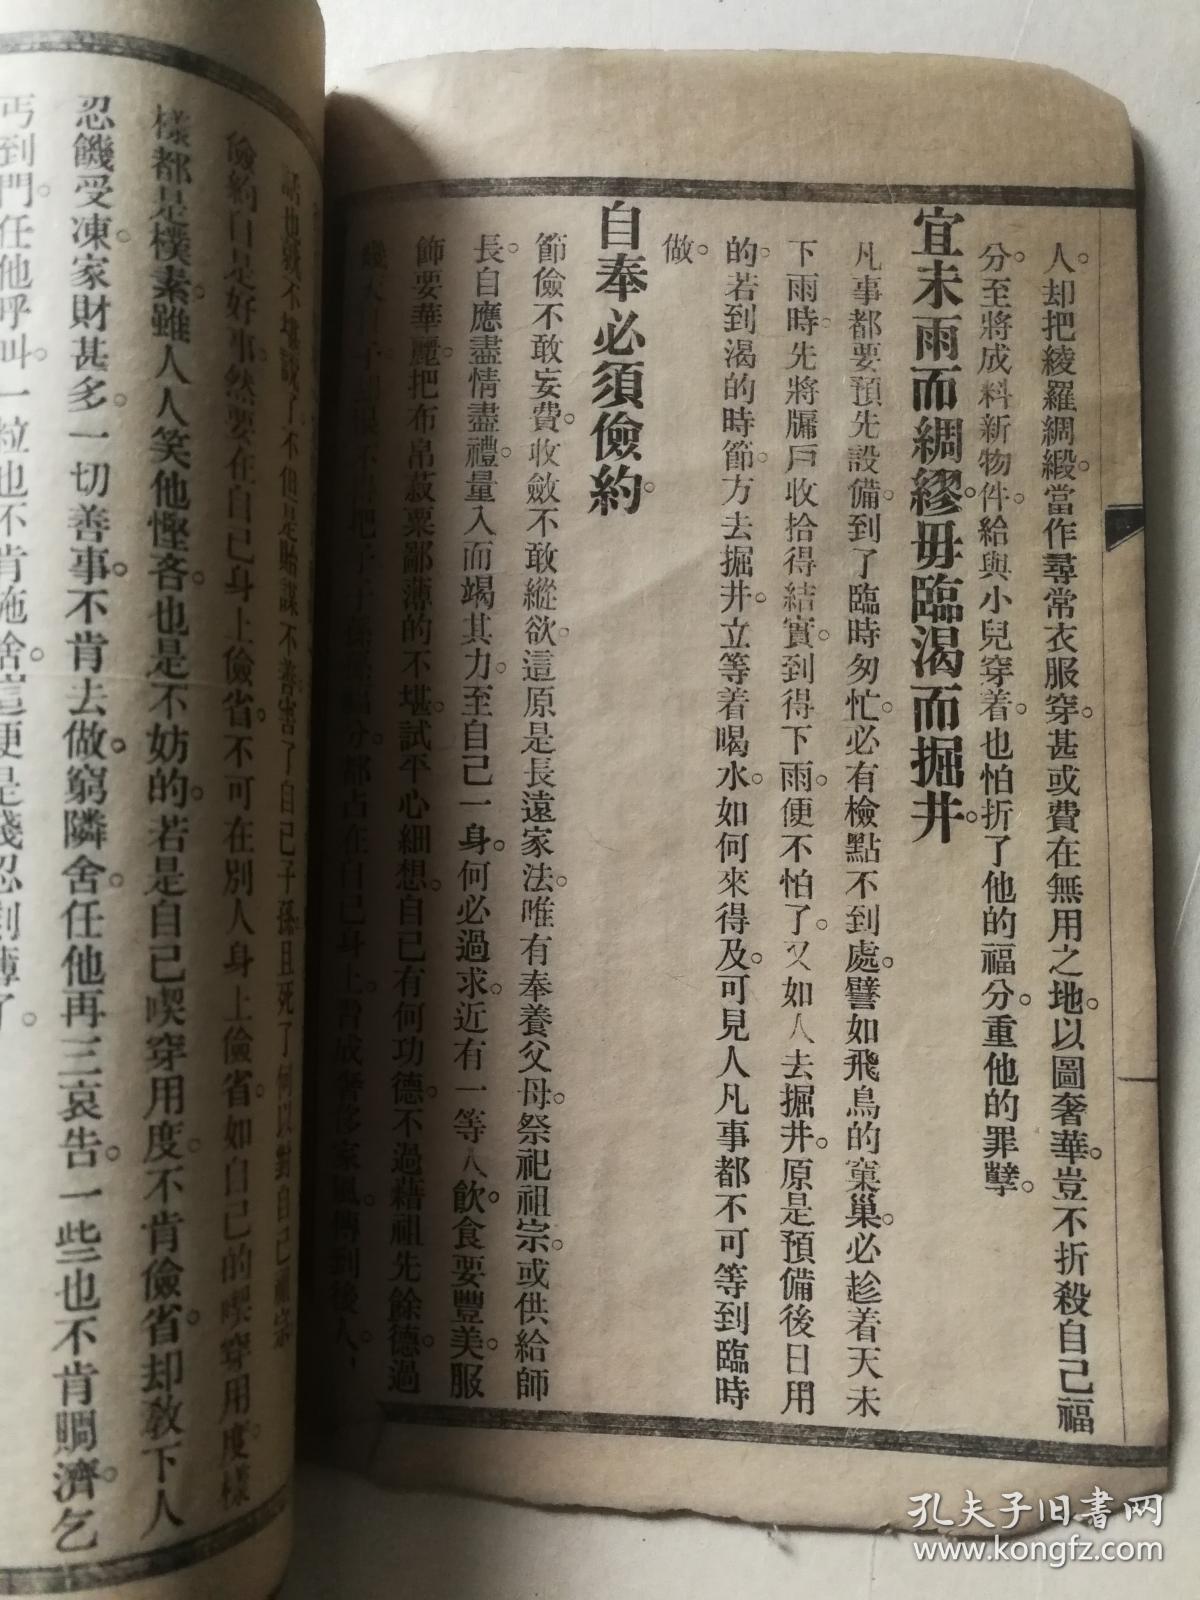 人。却把綾羅綢緞。當作尋常衣服穿。甚或費在無用之地。以圖奢華。豈不折殺自己福
分。至將成料新物件。給與小兒穿着。也怕折了他的福分。重他的罪孽。
宜未雨而綢繆。毋臨渴而掘井。
凡事都要預先設備。到了臨時匆忙。必有檢點不到處。譬如飛鳥的窠巢。必趁着天未
下雨時。先將牖戶收拾得結實。到得下雨。便不怕了。又如人去掘井。原是預備後日用
的。若到渴的時節。方去掘井。立等着喝水。如何來得及。可見人凡事都不可等到臨時
做。
自奉必須儉約。
節儉不敢妄費。收斂不敢縱欲。這原是長遠家法。唯有奉養父母。祭祀祖宗。或供給師
長。自應盡情盡禮。量入而竭其力。至自己一身。何必過求。近有一等人。飲食要豐美。服
飾要華麗。把布帛菽粟鄙薄的不堪。試平心細想。自己有何功德。不過藉祖先餘德。過
分。都占在自己身上。習成奢侈家風。傳到後人，
話也
不堪說了。不但是貽謀不善。害了自己子孫。且死了何以對自己祖宗
儉約自是好事。然要在自己身上儉省。不可在別人身上儉省。如自己的喫穿用度。樣
樣都是樸素。雖人人笑他慳吝。也是不妨的。若是自己喫穿用度。不肯儉省。却教下人
忍饑受凍。家財甚多。一切善事。不肯去做。窮隣舍。任他再三哀告。一些也不肯賙濟。乞
丐到門。任他呼叫。一粒也不肯施舍。這便是殘忍刻薄了。
孔夫子旧书网
www.kongfz.com